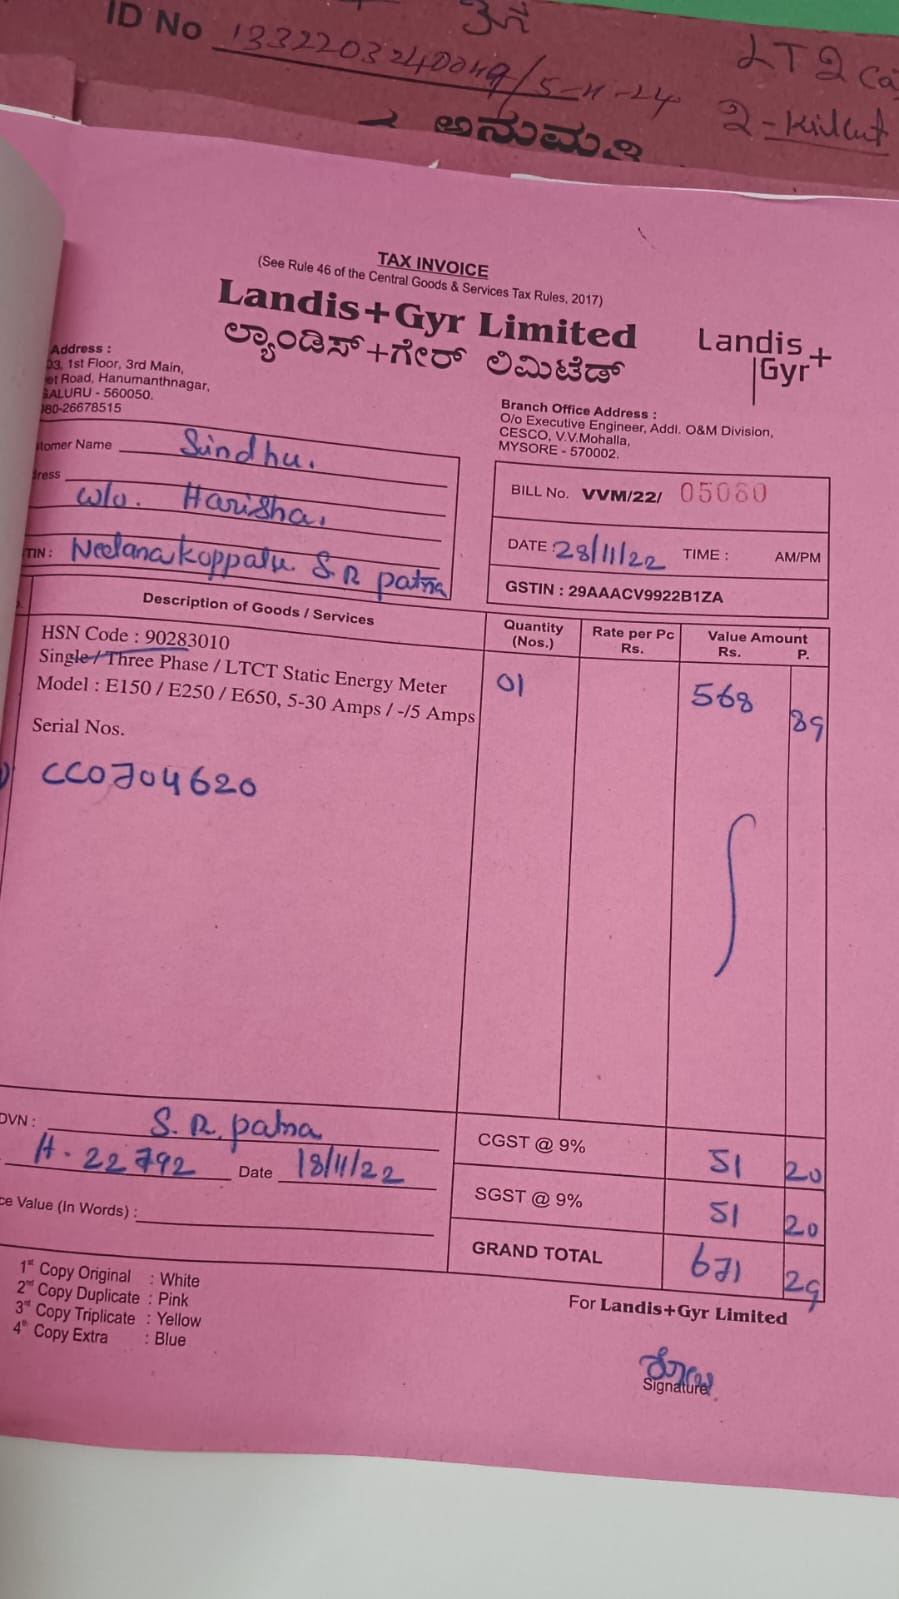 ID No 1332203240049/5-11-24
LT2
2-
ಅನುಮತಿ
TAX INVOICE
(See Rule 46 of the Central Goods & Services Tax Rules, 2017)
Landis+Gyr Limited
ಲ್ಯಾಂಡಿಸ್+ಗೇರ್ ಲಿಮಿಟೆಡ್
Landis+
Gyr
Address :
03, 1st Floor, 3rd Main,
et Road, Hanumanthnagar,
GALURU - 560050.
080-26678515
Branch Office Address :
O/o Executive Engineer, Addl. O&M Division,
CESCO, V.V.Mohalla,
MYSORE - 570002.
tomer Name Sindhu.
dress
W/o. Harisha.
TIN : Neelanakoppalu. S.R patna
BILL No. VVM/22/ 05060
DATE : 28/11/22 TIME : AM/PM
GSTIN : 29AAACV9922B1ZA
Description of Goods / Services Quantity (Nos.) Rate per Pc Rs. Value Amount Rs. P.
HSN Code : 90283010
Single / Three Phase / LTCT Static Energy Meter 01 568 89
Model : E150 / E250 / E650, 5-30 Amps / -/5 Amps
Serial Nos.
CC0704620
DVN : S.R. patna
CGST @ 9% 51 20
H-22792 Date 18/11/22
SGST @ 9% 51 20
ce Value (In Words) :
GRAND TOTAL 671 29
1st Copy Original : White
2nd Copy Duplicate : Pink
3rd Copy Triplicate : Yellow
4th Copy Extra : Blue
For Landis+Gyr Limited
Signature